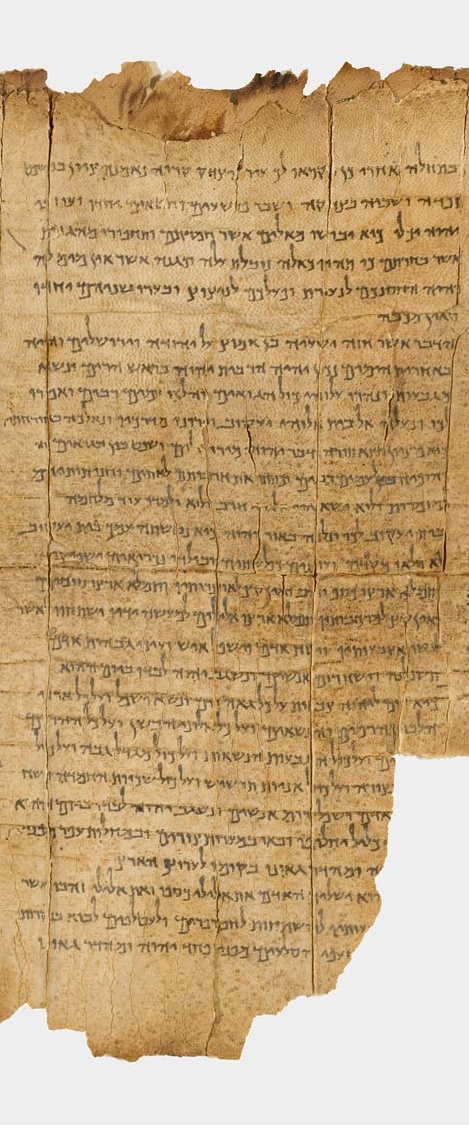 כבתחלה אחרי כן יקראו לך עיר הצדק קריה נאמנה ציון במשפט
תפדה ושביה בצדקה ושבר פושעים וחטאים יחדו ועוזבי
יהוה יכלו כיא יבושו מאלים אשר חמדתם ותחפרו מהגנות
אשר בחרתם כי תהיו כאלה נובלת עלה וכגנה אשר אין מים לה
והיה החסנכם לנעורת ופעלכם לניצוץ ובערו שניהם יחדו
ואין מכבה
הדבר אשר חזה ישעיה בן אמוץ על יהודה וירושלים והיה
באחרית הימים נכון יהיה הר בית יהוה בראש הרים ונשא
מגבעות ונהרו עלוהי כול הגואים והלכו עמים רבים ואמרו
לכו ונעלה אל בית אלוהי יעקוב וירונו מדרכיו ונלכה באורחותיו
כיא מציון תצא תורה ודבר יהוה מירושלים ושפט בין הגואים
והוכיח בין לעמים רבים וכתתו את חרבותם לאתים וחניתותיהם
למזמרות ולוא ישא חרב ולוא ילמדו עוד מלחמה
בית יעקוב לכו ונלכה באור יהוה כיא נטשתה עמך בית יעקוב
כיא מלאו מקדם כפלשתים ובילדי נכריאים ישפיקו
ותמלא ארצו כסף לאוצרותיו ותמלא ארצו סוסים
ואין קץ למרכבותיו ותמלא ארצו אלילים למעשה ידיו ישתחוו לאשר
עשו אצבעותיו וישח אדם וישפל איש ועיני גבהות אדם
תשפלנה וישח רום אנשים ונשגב יהוה לבדו ביום ההוא
כיא יום ליהוה צבאות על כל גאה ורם ונשא ושפל ועל כל ארזי
הלבנון הרמים והנשאים ועל כל אלוני הבשן ועל כל ההרים
הרמים ועל כול הגבעות הנשאות ועל כול מגדל גבה ועל כול
בצורה ועל כול אניות תרשיש ועל כול שכיות החמדה ושח
אדם ושפל רום אנשים ונשגב יהוה לבדו ביום ההוא
כליל יחלופו ובאו במערות צורים ובמחלות עפר מפני
יהוה ומהדר גאונו בקומו לערוץ הארץ
ההוא ישליך האדם את אלילי כספו ואת אלילי זהבו אשר
אצבעותיו להשתחות לחפרפרים ולעטלפים לבוא בנקרות
הסלעים מפני פחד יהוה ומהדר גאונו